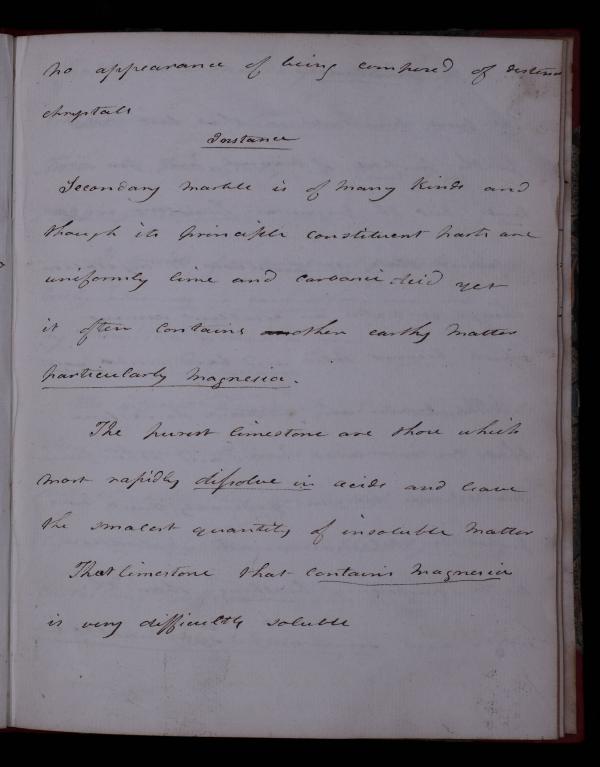 no appearance of being composed of distinct
chrystals
Instance
Secondary marble is of many kinds and
though its principle constituent parts are
uniformly lime and carbonic acid yet
it often contains other earthy matter
particularly magnesia.
The purest limestone are those which
most rapidly dissolve in acids and leave
the smalest quantity of insoluble matter
That limestone that contains magnesia
is very difficultly soluble